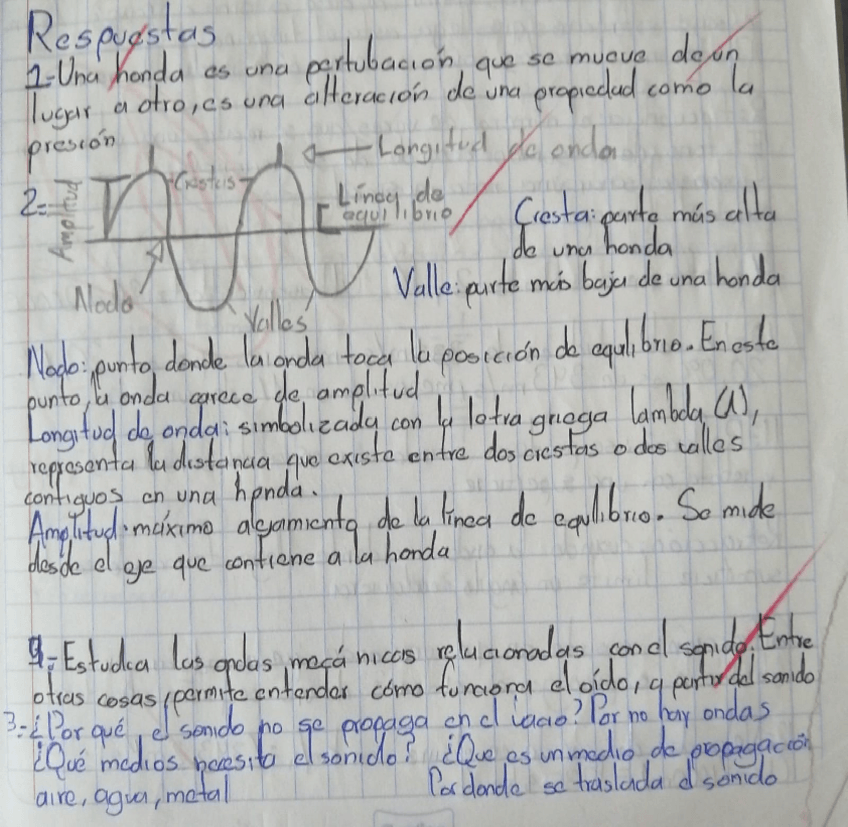 Respuestas
1-Una honda es una pertubación que se mueve de un
lugar a otro, es una alteración de una propiedad como la
presión
Longitud de onda
2=
Amplitud
Crestas
Línea de
equilibrio
Cresta: parte más alta
de una honda
Nodo
Valles
Valle: parte más baja de una honda
Nodo: punto donde la onda toca la posición de equlibrio. En este
punto, la onda carece de amplitud
Longitud de onda: simbolizada con la letra griega lambda (λ),
representa la distancia que existe entre dos crestas o dos valles
contiguos en una honda.
Amplitud: máximo alejamiento de la línea de equlibrio. Se mide
desde el eje que contiene a la honda
9-Estudia las ondas mecánicas relacionadas con el sonido. Entre
otras cosas, permite entender cómo funciona el oído, a partir del sonido
3=¿Por qué el sonido no se propaga en el vacio? Por no hay ondas
¿Qué medios necesita el sonido? ¿Que es un medio de propagación
aire, agua, metal
Por donde se traslada el sonido